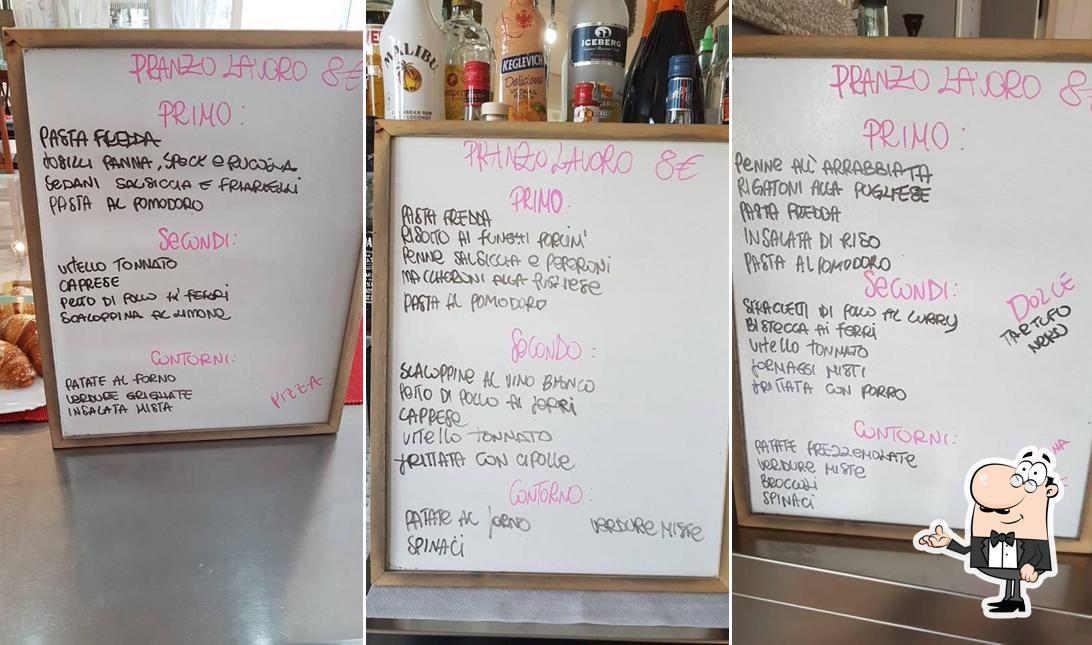 PRANZO LAVORO 8€
PRIMO:
PASTA FREDDA
FUSILLI PANNA, SPECK E RUCOLA
SEDANI SALSICCIA E FRIARIELLI
PASTA AL POMODORO
SECONDI:
VITELLO TONNATO
CAPRESE
PETTO DI POLLO AI FERRI
SCALOPPINA AL LIMONE
CONTORNI:
PATATE AL FORNO
VERDURE GRIGLIATE
INSALATA MISTA
PIZZA
MALIBU
KEGLEVICH
Delicious
VODKA
ICEBERG
PRANZO LAVORO 8€
PRIMO:
PASTA FREDDA
RISOTTO AI FUNGHI PORCINI
PENNE SALSICCIA E PEPERONI
MACCHERONI ALLA PUGLIESE
PASTA AL POMODORO
SECONDO:
SCALOPPINE AL VINO BIANCO
PETTO DI POLLO AI FERRI
CAPRESE
VITELLO TONNATO
FRITTATA CON CIPOLLE
CONTORNO:
PATATE AL FORNO VERDURE MISTE
SPINACI
PRANZO LAVORO 8
PRIMO:
PENNE ALL'ARRABBIATA
RIGATONI ALLA PUGLIESE
PASTA FREDDA
INSALATA DI RISO
PASTA AL POMODORO
SECONDI:
STRACCETTI DI POLLO AL CURRY
BISTECCA AI FERRI
VITELLO TONNATO
FORMAGGI MISTI
FRITTATA CON PORRO
DOLCE
TARTUFO
NERO
CONTORNI:
PATATE PREZZEMOLATE
VERDURE MISTE
BROCCOLI
SPINACI